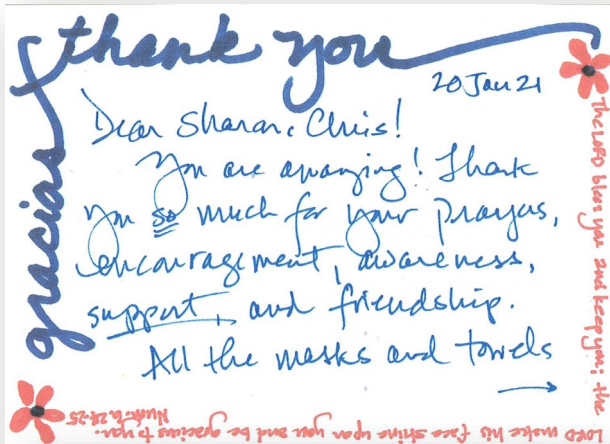 thank you
gracias
20 Jan 21
Dear Sharon, Chris!
You are amazing! Thank
you so much for your prayers,
encouragement, awareness,
support, and friendship.
All the masks and towels
→
The LORD bless you and keep you; the
LORD make his face shine upon you and be gracious to you.
Num. 6:24-25